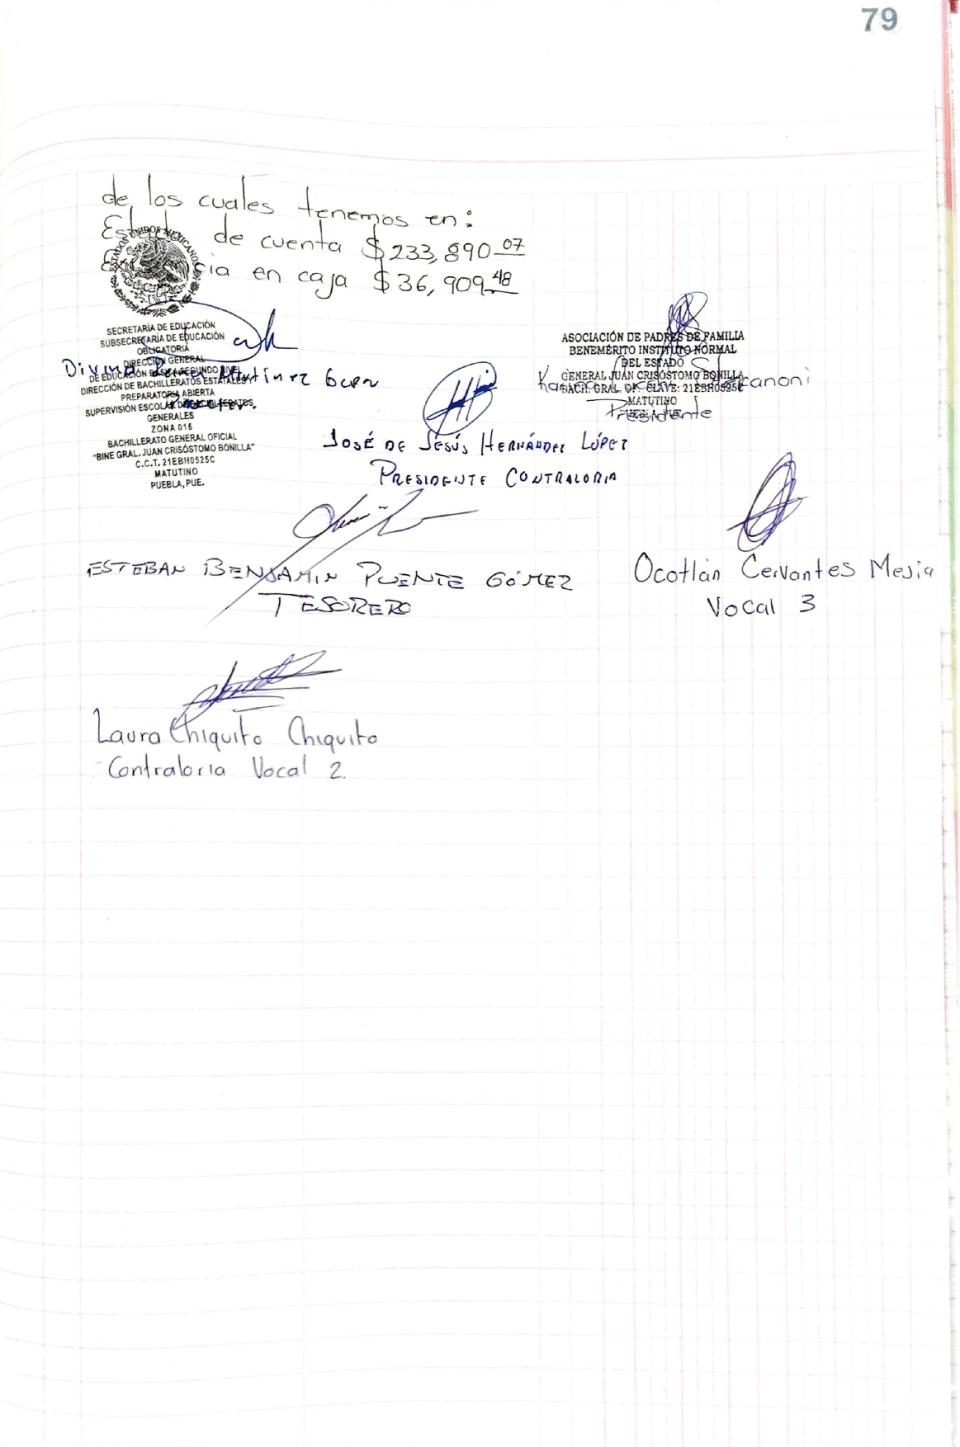 79
de los cuales tenemos en:
de cuenta $233,890.07
cia en caja $36,909.48
SECRETARÍA DE EDUCACIÓN
SUBSECRETARIA DE EDUCACIÓN
OBLIGATORIA
DIRECCIÓN GENERAL
DE EDUCACIÓN
DIRECCIÓN DE BACHILLERATOS ESTATALES
PREPARATORIA ABIERTA
SUPERVISIÓN ESCOLAR
GENERALES
ZONA 016
BACHILLERATO GENERAL OFICIAL
"BINE GRAL. JUAN CRISÓSTOMO BONILLA"
C.C.T. 21EBH0525C
MATUTINO
PUEBLA, PUE.
ASOCIACIÓN DE PADRES DE FAMILIA
BENEMÉRITO INSTITUTO NORMAL
DEL ESTADO
GENERAL JUAN CRISÓSTOMO BONILLA
BACH. GRAL. OF. CLAVE: 21EBH0525C
MATUTINO
Presidente
JOSÉ DE JESÚS HERNÁNDEZ LÓPEZ
PRESIDENTE CONTRALORIA
ESTEBAN BENJAMIN PUENTE GÓMEZ
TESORERO
Ocotlán Cervantes Mejia
Vocal 3
Laura Chiquito Chiquito
Contraloria Vocal 2.